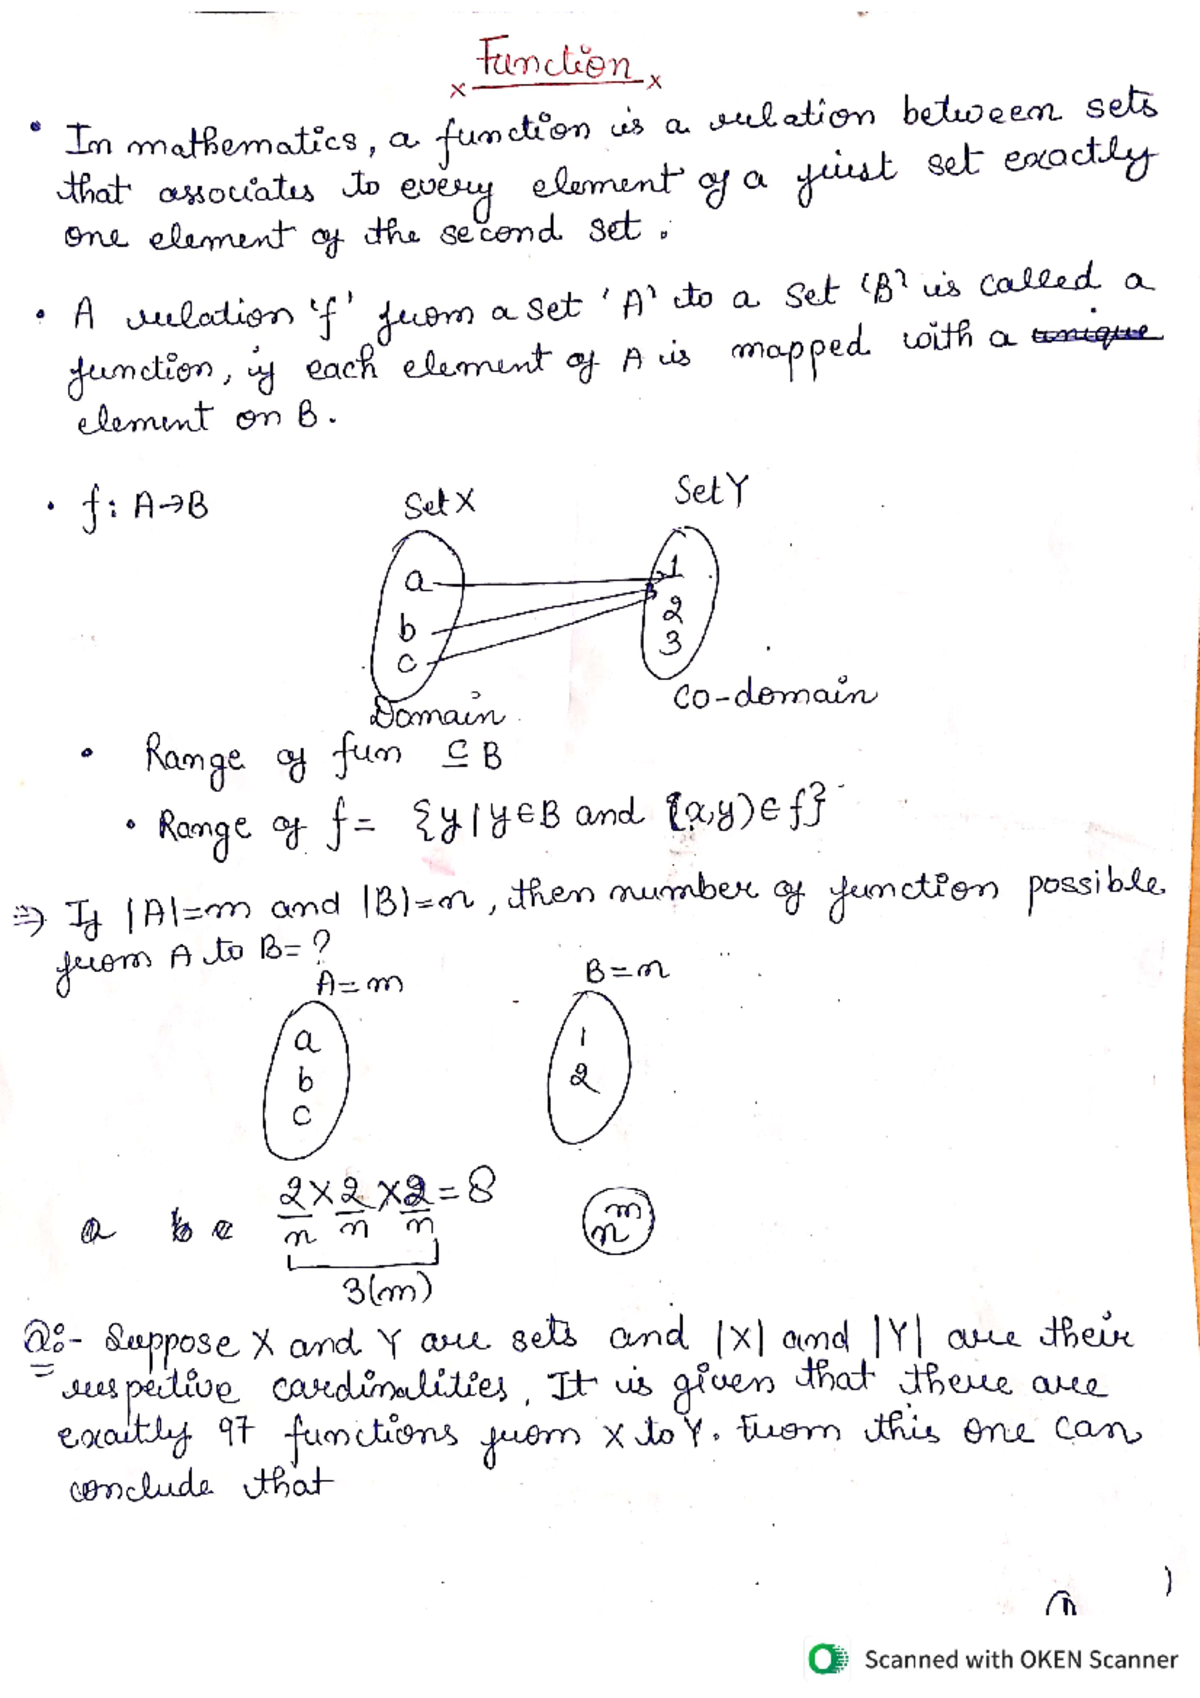 Function
• In mathematics, a function is a relation between sets
that associates to every element of a first set exactly
one element of the second set.
• A relation 'f' from a set 'A' to a set 'B' is called a
function, if each element of A is mapped with a unique
element on B.
• f: A→B
Set X
Set Y
a
b
c
1
2
3
Domain
Co-domain
• Range of fun ⊆ B
• Range of f = {y | y ∈ B and (x,y) ∈ f}
⇒ If |A|=m and |B|=n, then number of function possible
from A to B = ?
A=m
B=n
a
b
c
1
2
a b c 2×2×2=8
n n n
n^m
3(m)
Q:- Suppose X and Y are sets and |X| and |Y| are their
respective cardinalities. It is given that there are
exactly 97 functions from X to Y. From this one can
conclude that
Scanned with OKEN Scanner